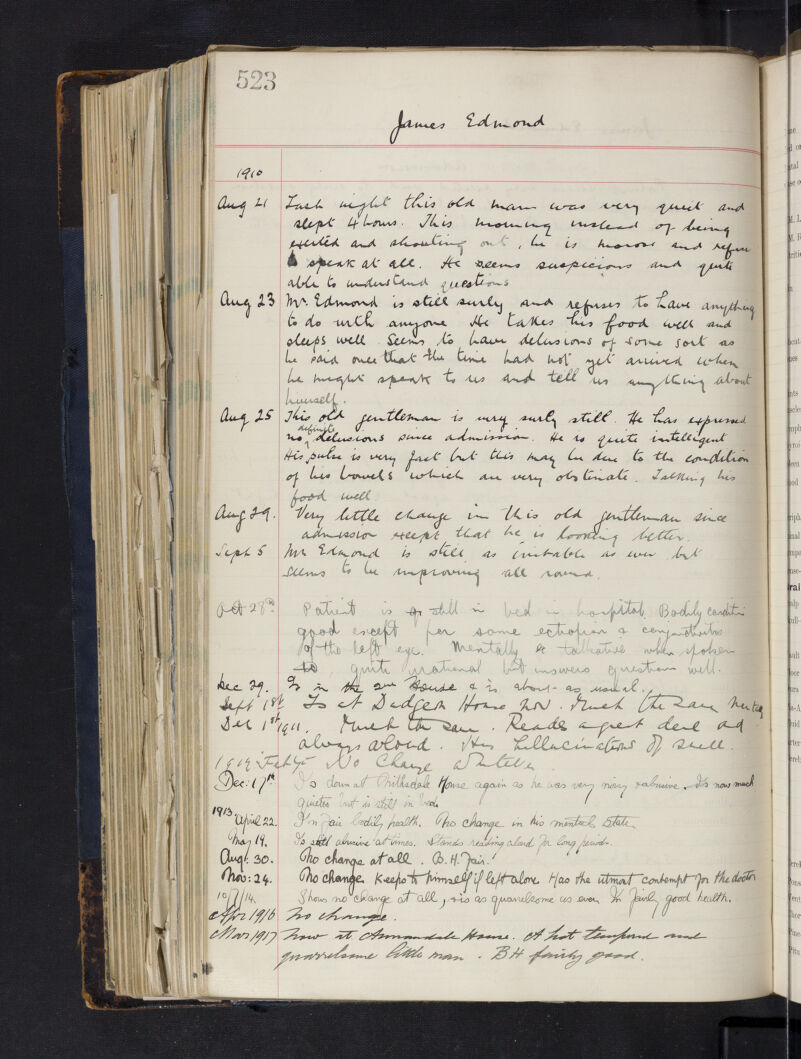 523
James Edmond
1910
Aug 21 Last night this old man was very quiet and
slept 4 hours. This morning instead of being
excited and shouting out, he is morose and refuses
to speak at all. He seems suspicious and quite
able to understand questions
Aug 23 Mr. Edmond is still surly and refuses to have anything
to do with anyone He takes his food well and
sleeps well. Seems to have delusions of some sort as
he said once that the time had not yet arrived when
he might speak to us and tell us anything about
himself.
Aug 25 This old gentleman is very surly still. He has expressed
no definite delusions since admission. He is quite intelligent
His pulse is very fast but this may be due to the condition
of his bowels which are very obstinate. Talking his
food well
Aug 29. Very little change in this old gentleman since
admission except that he is looking better.
Sept 5 Mr Edmond is still as irritable as ever but
seems to be improving all round.
Oct 28th Patient is still in bed in hospital. Bodily condition
good except for some ectropion & conjunctivitis
of the left eye. Mentally is talkative when spoken
to, quite irrational but answers questions well.
Dec 29. Is in the 2nd House & is about as usual.
Sept 1st Is at Dudgeon House now. Much the same mentally
Dec 1st 1911. Much the same. Reads a great deal and
always aloud. Has hallucinations of smell.
1912 Feby No Change whatever
Dec: 17th Is down at Nithsdale House again as he was very noisy & abusive. Is now much
quieter but is still in bed.
1913. April 22. In fair bodily health. No change in his mental state.
May 19. Is still abusive at times. Stands reading aloud for long periods.
Aug: 30. No change at all. B.H. Fair.
Nov: 24. No change. Keeps to himself if left alone Has the utmost contempt for the doctor
10/7/14. Shows no change at all, & is as quarrelsome as ever. In fairly good health.
Apr 1916 No change.
Mar 1917 Now at Annandale House. A hot tempered and
quarrelsome little man. BH fairly good.